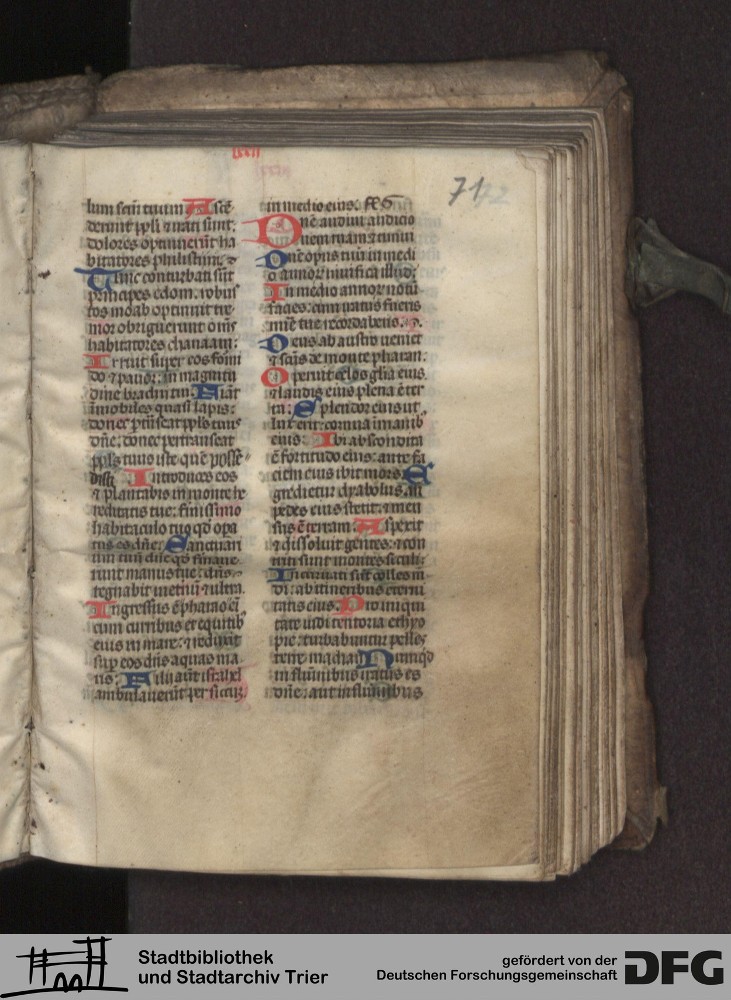 lxxii
71 72
lum scm̄ tuum Ascē
derunt ppl̄i ⁊ irati sunt:
dolores optinuerūt ha
bitatores philistiim.
Tunc conturbati sūt
principes edom. robus
tos moab optinuit tre
mor obriguerunt om̄s
habitatores chanaam:
Irruit super eos formi
do ⁊ pauor: in magnitu
dine brachii tui. Fiāt
īmobiles quasi lapis:
donec ptrāseat ppl̄s tuus
dn̄e: donec pertranseat
ppl̄s tuus iste quē possē
disti Introduces eos
⁊ plantabis in monte he
reditatis tue: firmissimo
habitaculo tuo qd opa
tus es dn̄e: Sanctuari
um tuū dn̄e qd firmaue
runt manus tue: dn̄s
regnabit ī etnū ⁊ ultra.
Ingressus ē pharao cū
cum curribus et equitib
eius in mare: ⁊ reduxit
sup eos dn̄s aquas ma
ris: Filii aūt israhel
ambulauerūt per siccū
in medio eius.
Dn̄e audiui auditio
nem tuam ⁊ timui
Dn̄e opus tuū in medi
o annoꝝ uiuifica illud:
In medio annoꝝ notū
facies: cum iratus fueris
mīe tue recordaberis.
Deus ab austro ueniet
⁊ scūs de monte pharan:
Operuit celos gl̄ia eius.
⁊ laudis eius plena ē ter
ra: Splendor eius ut
lux erit: cornua ī manib
eius: Ibi abscondita
ē fortitudo eius: ante fa
ciem eius ibit mors E
gredietur dyabolus. an
pedes eius stetit: ⁊ men
sus ē terram: Aspexit
⁊ dissoluit gentes: ⁊ con
triti sunt montes seculi:
Incuruati sūt colles mū
di: ab itineribus eterni
tatis eius. Pro iniqui
tate uidi tentoria ethyo
pie: turbabuntur pelles
terre madian Numqd
in fluminibus iratus es
dn̄e: aut in fluminibus
Stadtbibliothek
und Stadtarchiv Trier
gefördert von der
Deutschen Forschungsgemeinschaft
DFG